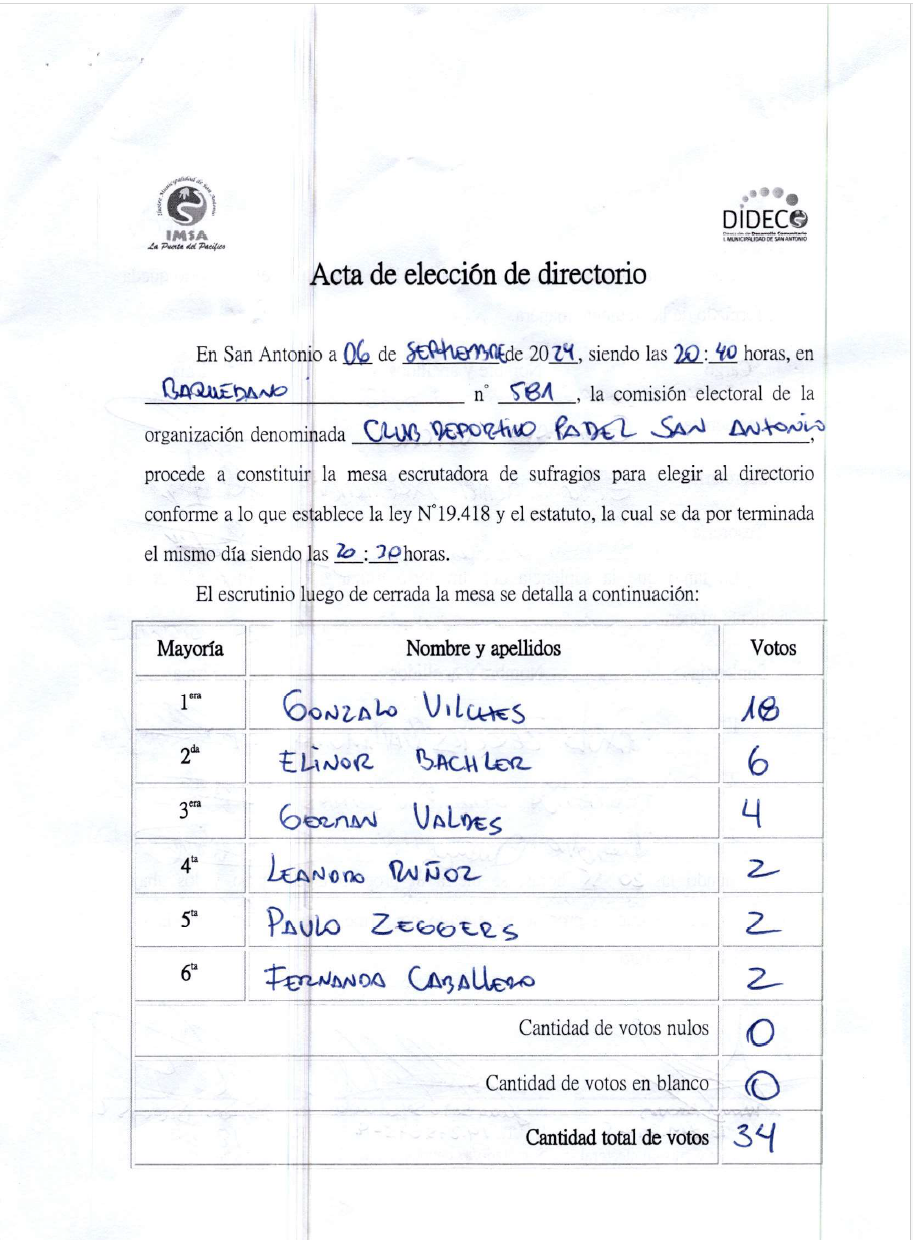 Ilustre Municipalidad de San Antonio
IMSA
La Puerta del Pacífico
DIDECO
Dirección de Desarrollo Comunitario
I. MUNICIPALIDAD DE SAN ANTONIO
Acta de elección de directorio
En San Antonio a 06 de SEPTIEMBRE de 2024, siendo las 20:40 horas, en
BAQUEDANO n° 581, la comisión electoral de la
organización denominada CLUB DEPORTIVO PADEL SAN ANTONIO,
procede a constituir la mesa escrutadora de sufragios para elegir al directorio
conforme a lo que establece la ley N°19.418 y el estatuto, la cual se da por terminada
el mismo día siendo las 20: horas.
El escrutinio luego de cerrada la mesa se detalla a continuación:
Mayoría Nombre y apellidos Votos
1era GONZALO VILCHES 18
2da ELINOR BACHLER 6
3era GERMAN VALDES 4
4ta LEANDRO 2
5ta PAULO ZEGGERS 2
6ta FERNANDA CABALLERO 2
Cantidad de votos nulos 0
Cantidad de votos en blanco 0
Cantidad total de votos 34